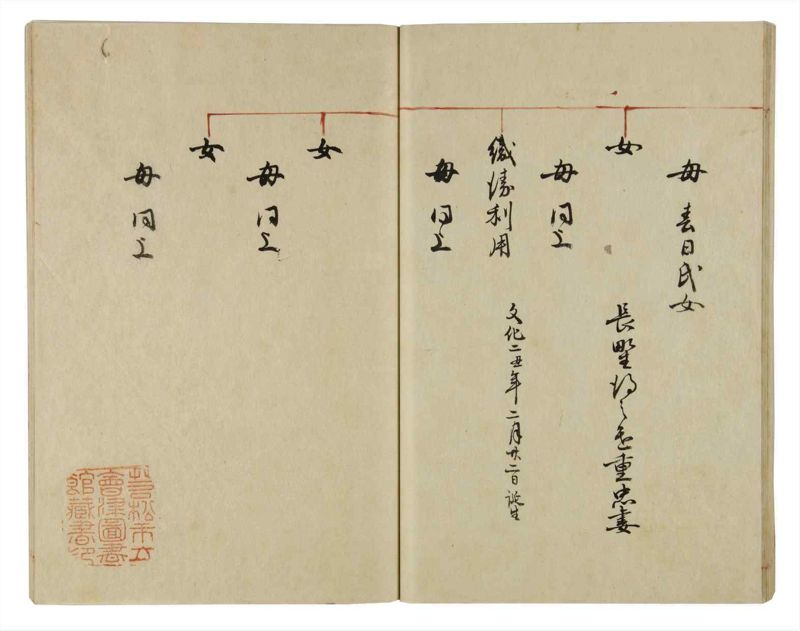 母 春日氏女
女
長野
重忠妻
母 同上
織 利用
文化二丑年二月廿二日誕生
母 同上
女
母 同上
女
母 同上
若松市立
會津圖書
館藏書印